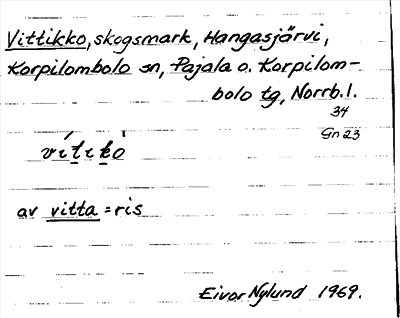 Vittikko, skogsmark, Hangasjärvi,
Korpilombolo sn, Pajala o. Korpilom-
bolo tg, Norrb. l.
34
Gn 23
av vitta = ris
Eivor Nylund 1969.